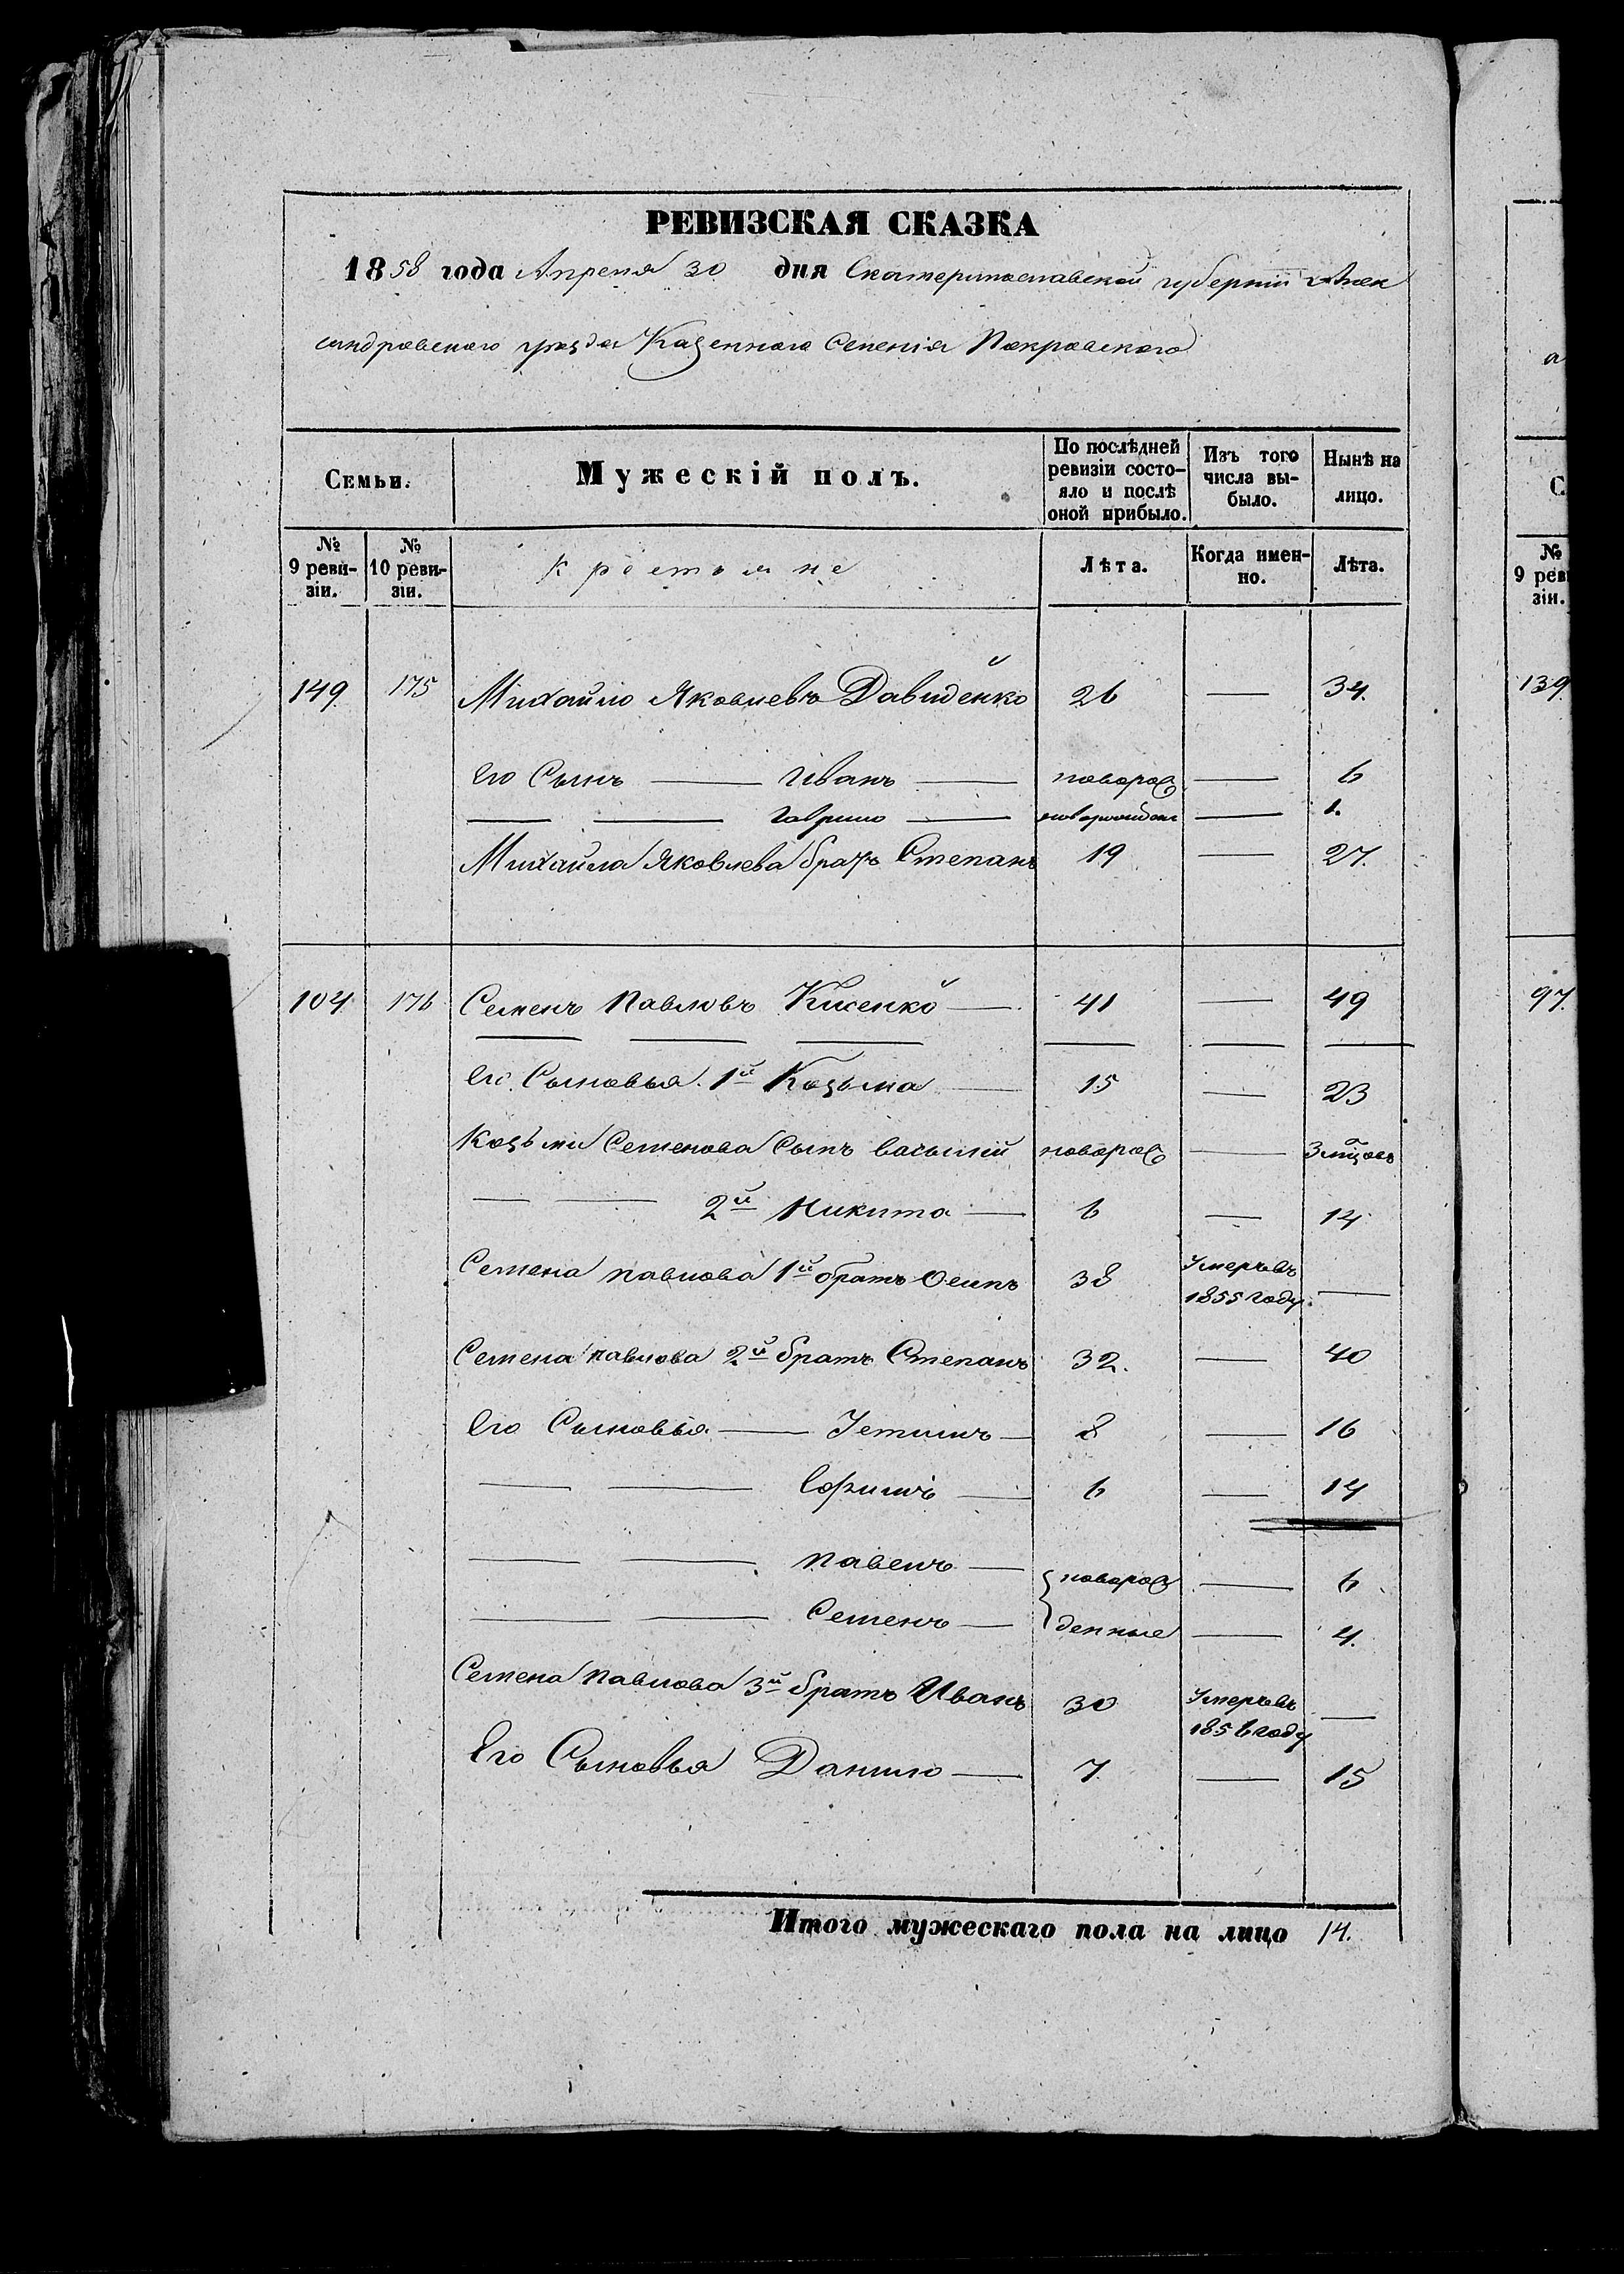 РЕВИЗСКАЯ СКАЗКА
1858 года Апреля 30 дня Екатеринославской губернии Алек
сандровского уезда Казенного Селенія Покровского
Семьи. Мужескій полъ. По послѣдней ревизіи состо- яло и послѣ оной прибыло. Изъ того числа вы- было. Нынѣ на лицо.
№ 9 реви- зіи. № 10 реви- зіи. крестьяне Лѣта. Когда имен- но. Лѣта.
149 175 Михайло Яковлевъ Давиденко 26 — 34.
Его Сынъ — Иванъ — новорож — 6
— — Гаврило — новорожден — 1.
Михайла Яковлева братъ Степанъ 19 — 27.
104 176 Семенъ Павловъ Кисенко — 41 — 49
Его Сыновья 1й Козьма — 15 — 23
Козьми Семенова Сынъ василий новорож — 3 мѣсов
— — 2й Никита — 6 — 14
Семена павлова 1й братъ Осипъ 38 Умеръ въ 1855 году. —
Семена павлова 2й братъ Степанъ 32. — 40
Его Сыновья — Устимъ — 8 — 16
— — Ефимъ — 6 — 14
— — павелъ — новорож — 6
— — Семенъ — денные — 4.
Семена павлова 3й братъ Иванъ 30 Умеръ въ 1856 году —
Его Сыновья Данило — 7 — 15
Итого мужескаго пола на лицо 14.
а
С
№
9 рев
зіи.
139
97.